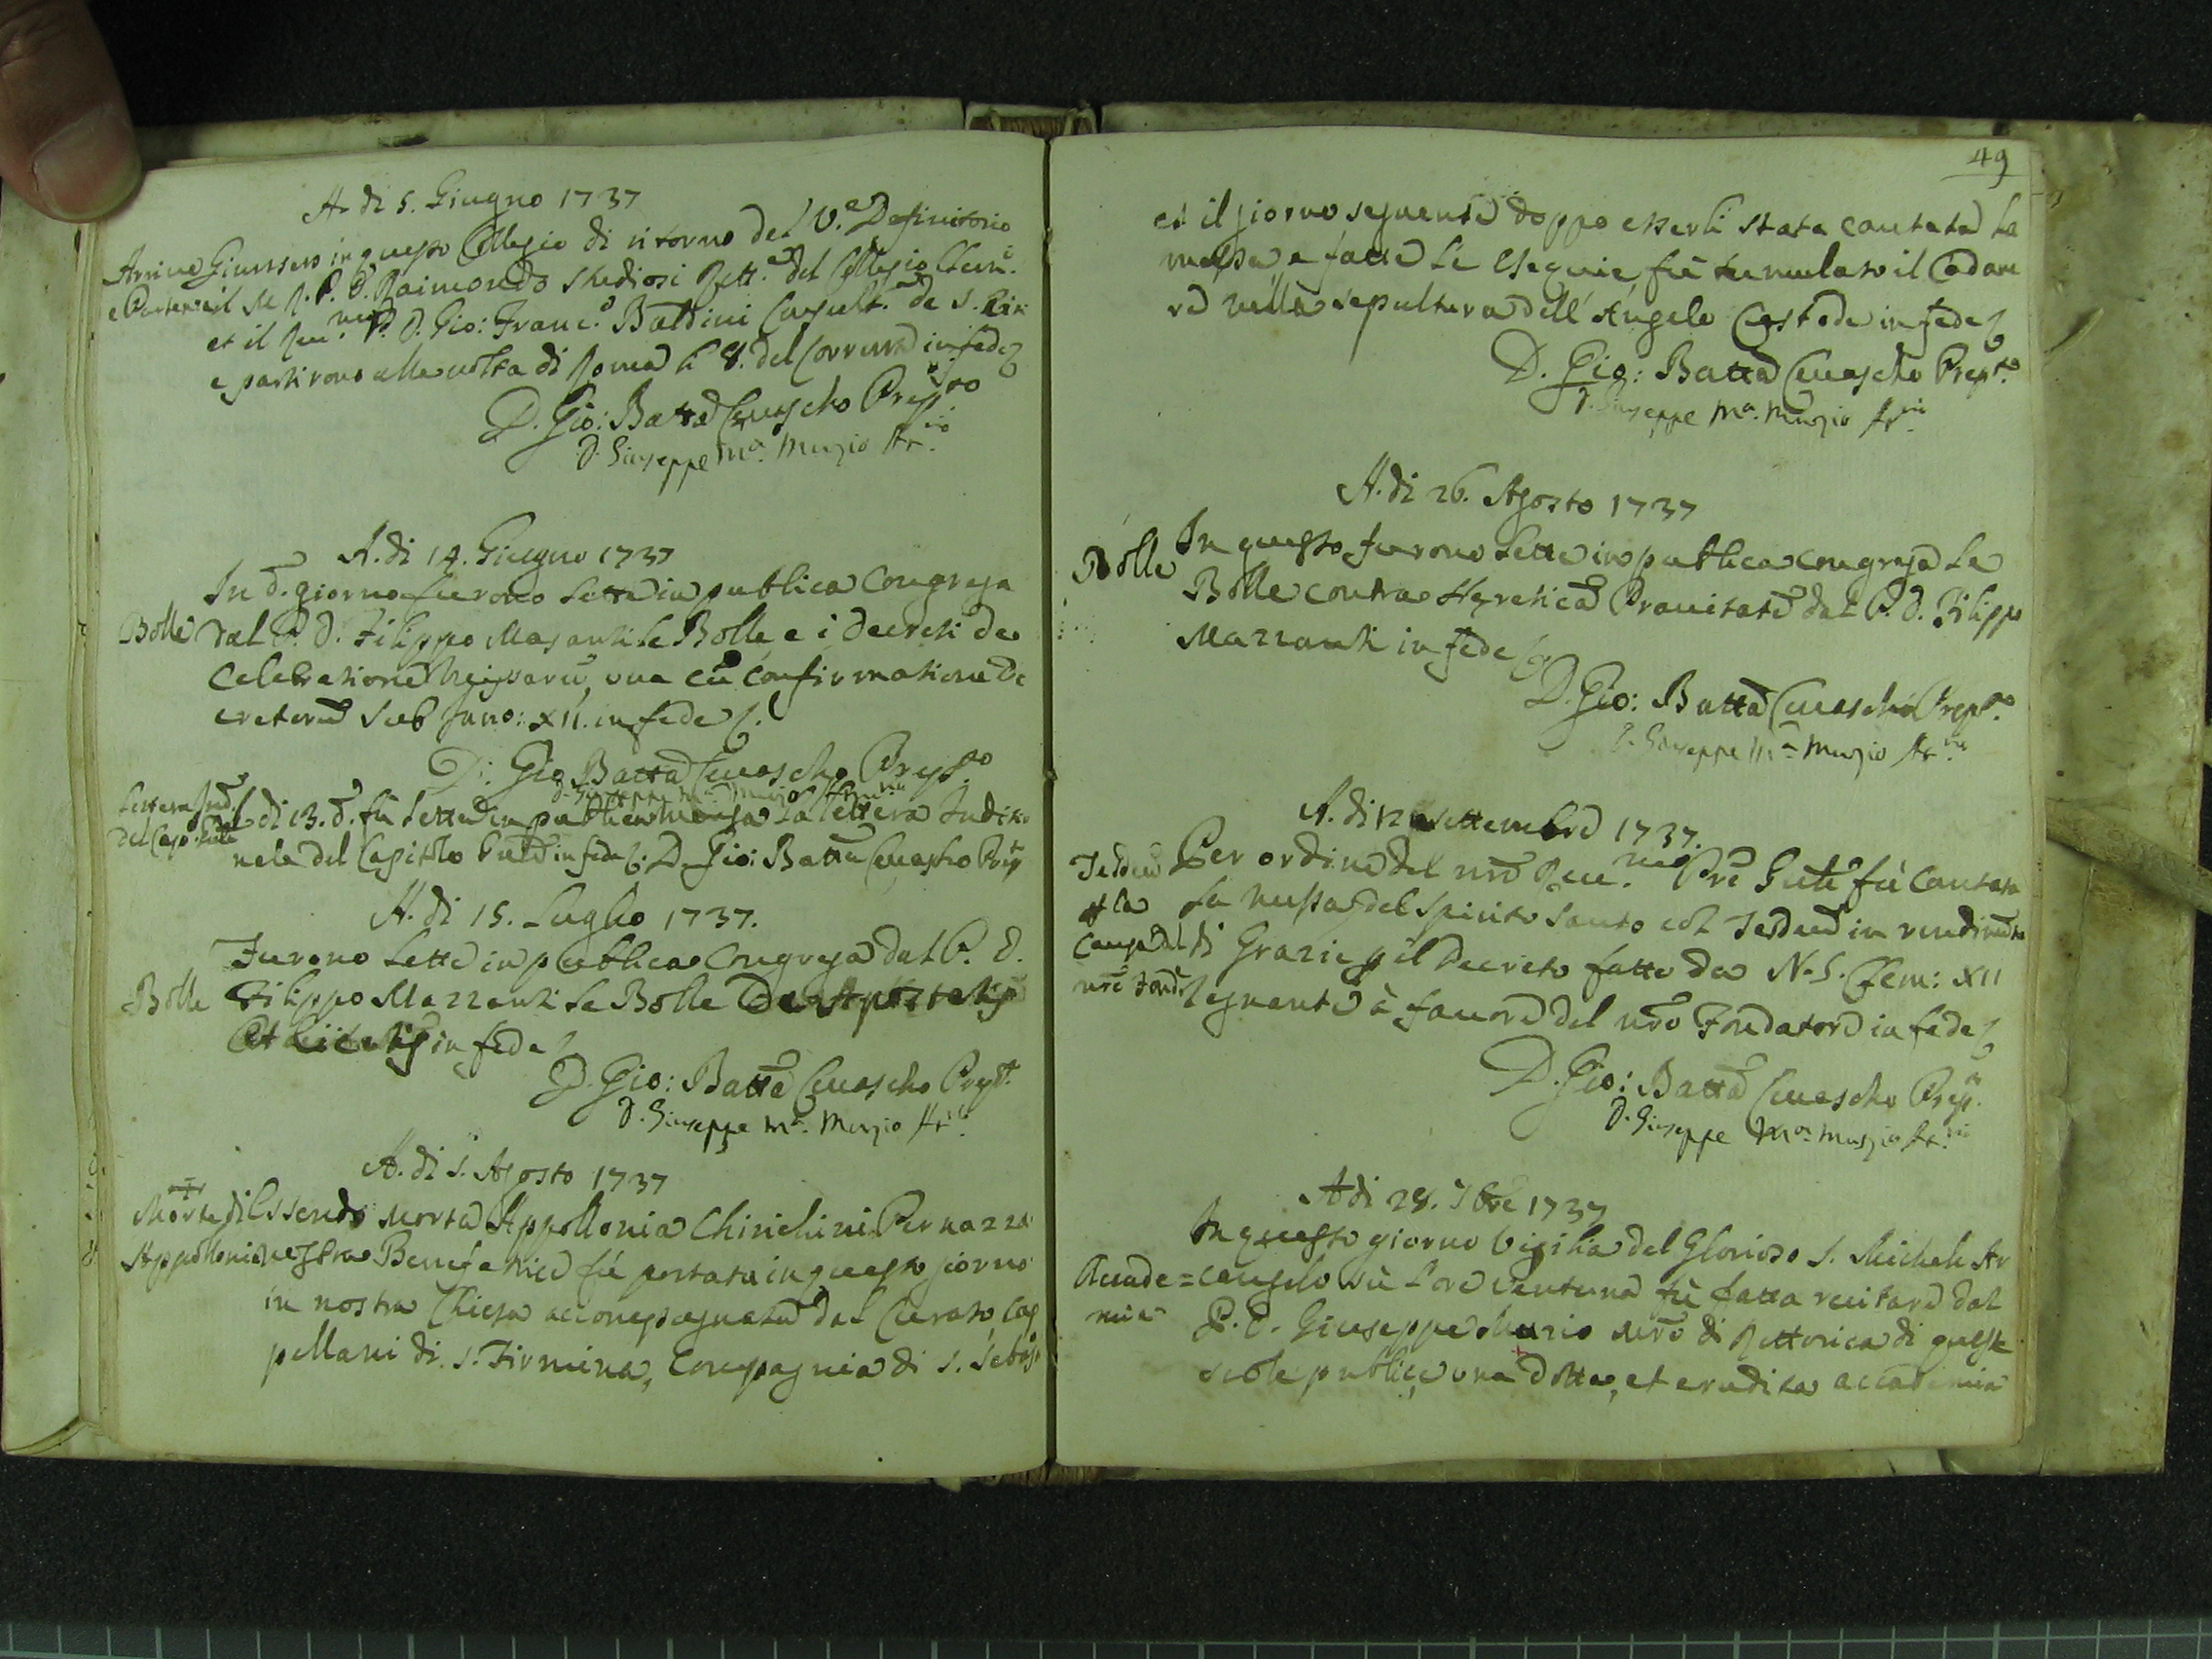 A. di 5. Giugno 1737
Arrivo Giunsero in questo Collegio di ritorno del V.e Definitorio
e Parten: il M. R. P. D. Raimondo Studiosi Rett.e del Collegio Clem.o
et il Reu.mo P. D. Gio: Franc.o Baldini Consult.e de S. Riti
e partirono alla volta di Roma li 8. del Corrente in fede
D. Gio: Batta Cevascho Prep.to
D. Giuseppe M.a Muzio Att.rio
A. di 14. Giugno 1737
In d. giorno furono lette in publica Congrega
Bolle dal P. D. Filippo Masanti le Bolle e i decreti de
Celebratione Missarũ, una cũ Confirmatione De
cretorũ sub Inno: XII. in fede
D. Gio Batta Cevascho Prep.to
D. Giuseppe M.a Muzio Att.rio
Lettera Ind.
del Cap. Gñle
A di 13. d. fù letta in publica mensa la lettera Indiz.
nale del Capitolo Gñle in fede D. Gio: Batta Cevascho Prep
A. di 15. Luglio 1737.
Furono lette in publica Congrega dal P. D.
Bolle Filippo Mazzanti le Bolle De Apostatis
et eiectis in fede
D. Gio: Batta Cevascho Prep.to
D. Giuseppe M.a Muzio Att.rio
A. di 5. Agosto 1737
Morte di Essendo morta Appollonia Chirichini Pernazza
Appollonia nostra Benefatrice fù portata in questo giorno
in nostra Chiesa accompagnata dal Curato, Cap
pellani di S. Firmina, Compagnia di S. Sebast
49
et il giorno seguente doppo esserli stata cantata la
messa e fatte le esequie, fù tumulato il Cadave
re nella sepultura dell' Angelo Custode in fede
D. Gio: Batta Cevascho Prep.to
D. Giuseppe M.a Muzio Att.rio
A. di 26. Agosto 1737
Bolle In questo furono lette in publica congrega le
Bolle contra Hereticã Pravitatẽ dal P. D. Filippo
Mazzanti in fede
D. Gio: Batta Cevascho Prep.to
D. Giuseppe M.a Muzio Att.rio
A. di 12 settembre 1737.
Te Deum Per ordine del nrõ Reu.mo Prẽ Gñle fù Cantata
p la la messa del Spirito Santo col Te Deum in rendimẽto
Causa del di Grazie p il Decreto fatto da N. S. Clem: XII
nrõ Fond. regnante à favore del nrõ Fondatore in fede
D. Gio: Batta Cevascho Prep.
D. Giuseppe M.a Muzio Att.rio
A di 28. 7bre 1737
In questo giorno Vigilia del Glorioso S. Michele Ar
Accade= cangelo sù l'ore ventuna fù fatta recitare dal
mia P. D. Giuseppe Muzio Mrõ di Rettorica di queste
scole publiche una dotta, et erudita accademia